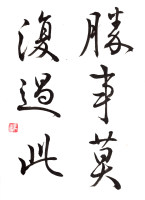 勝事莫
復過此